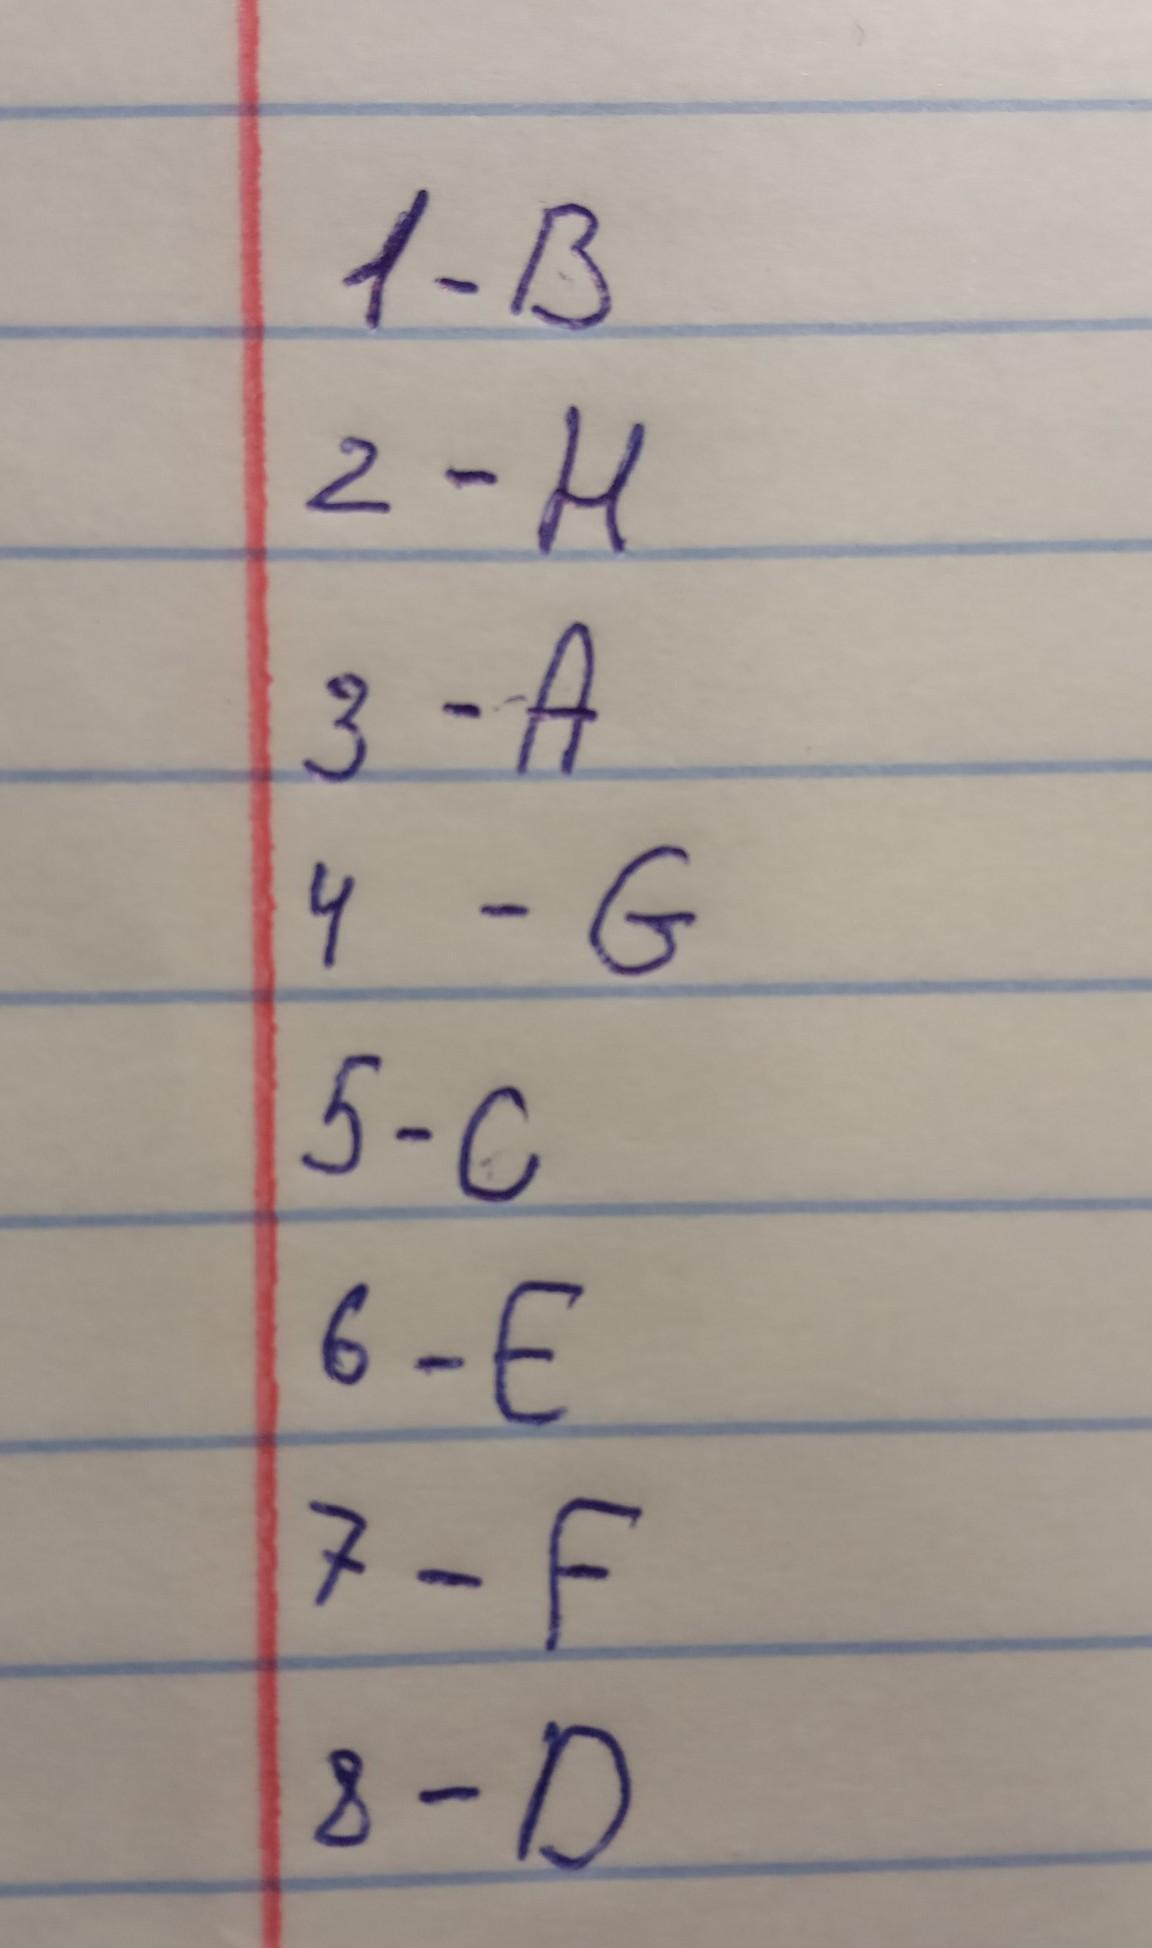 1 - B
2 - H
3 - A
4 - G
5 - C
6 - E
7 - F
8 - D